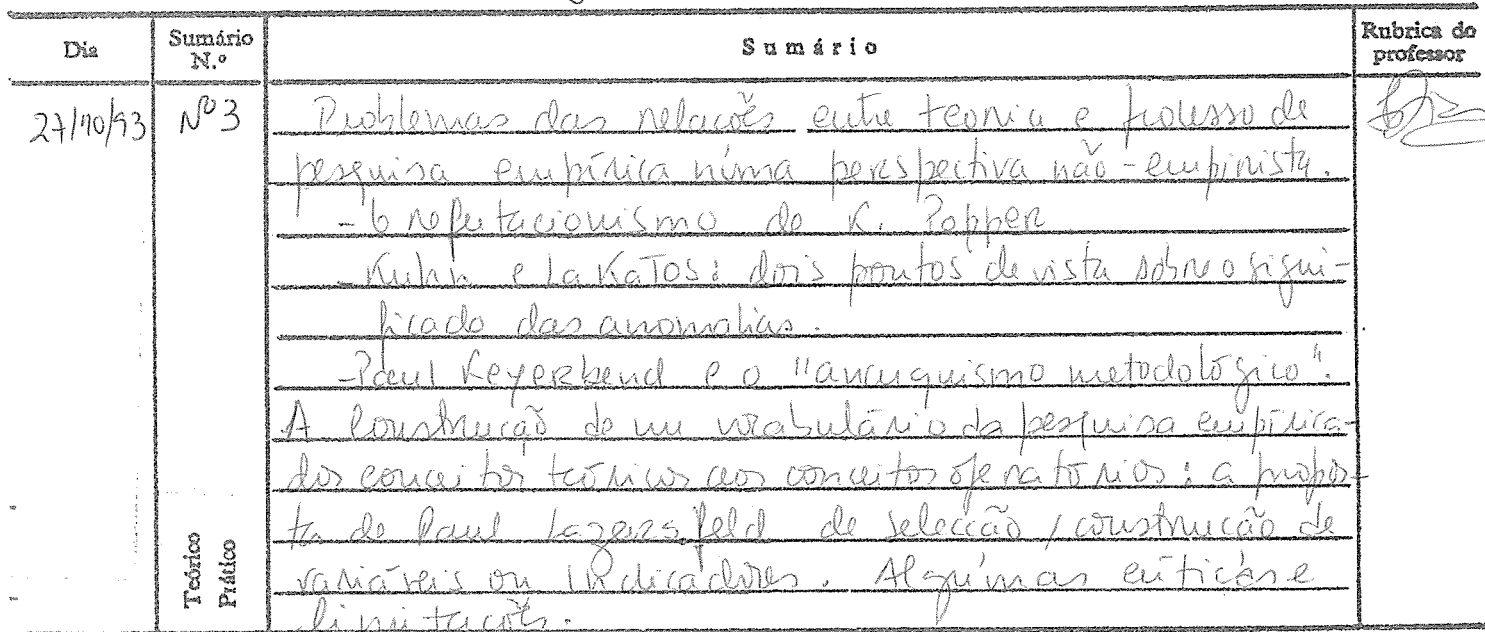 Dia
Sumário N.º
Sumário
Rubrica do professor
27/10/93
Nº 3
Problemas das relações entre teoria e processo de
pesquisa empírica núma perespectiva não-empirista.
- O refutacionismo de K. Popper
- Kuhn e LaKaTos: dois pontos de vista sobre o signi-
ficado das anomalias.
- Paul Feyerbend e o "anarquismo metodológico".
A construção de um vocabulário da pesquisa empírica-
dos conceitos teóricos aos conceitos operatórios: a propos-
ta de Paul Lazersfeld de selecção / construção de
variáveis ou indicadores. Algumas críticas e
limitações.
Teórico
Prático